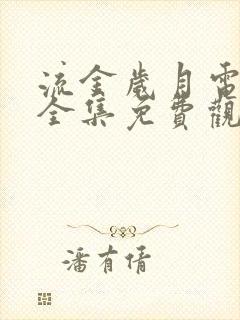 流金歲月電
全集免費觀
潘有倩